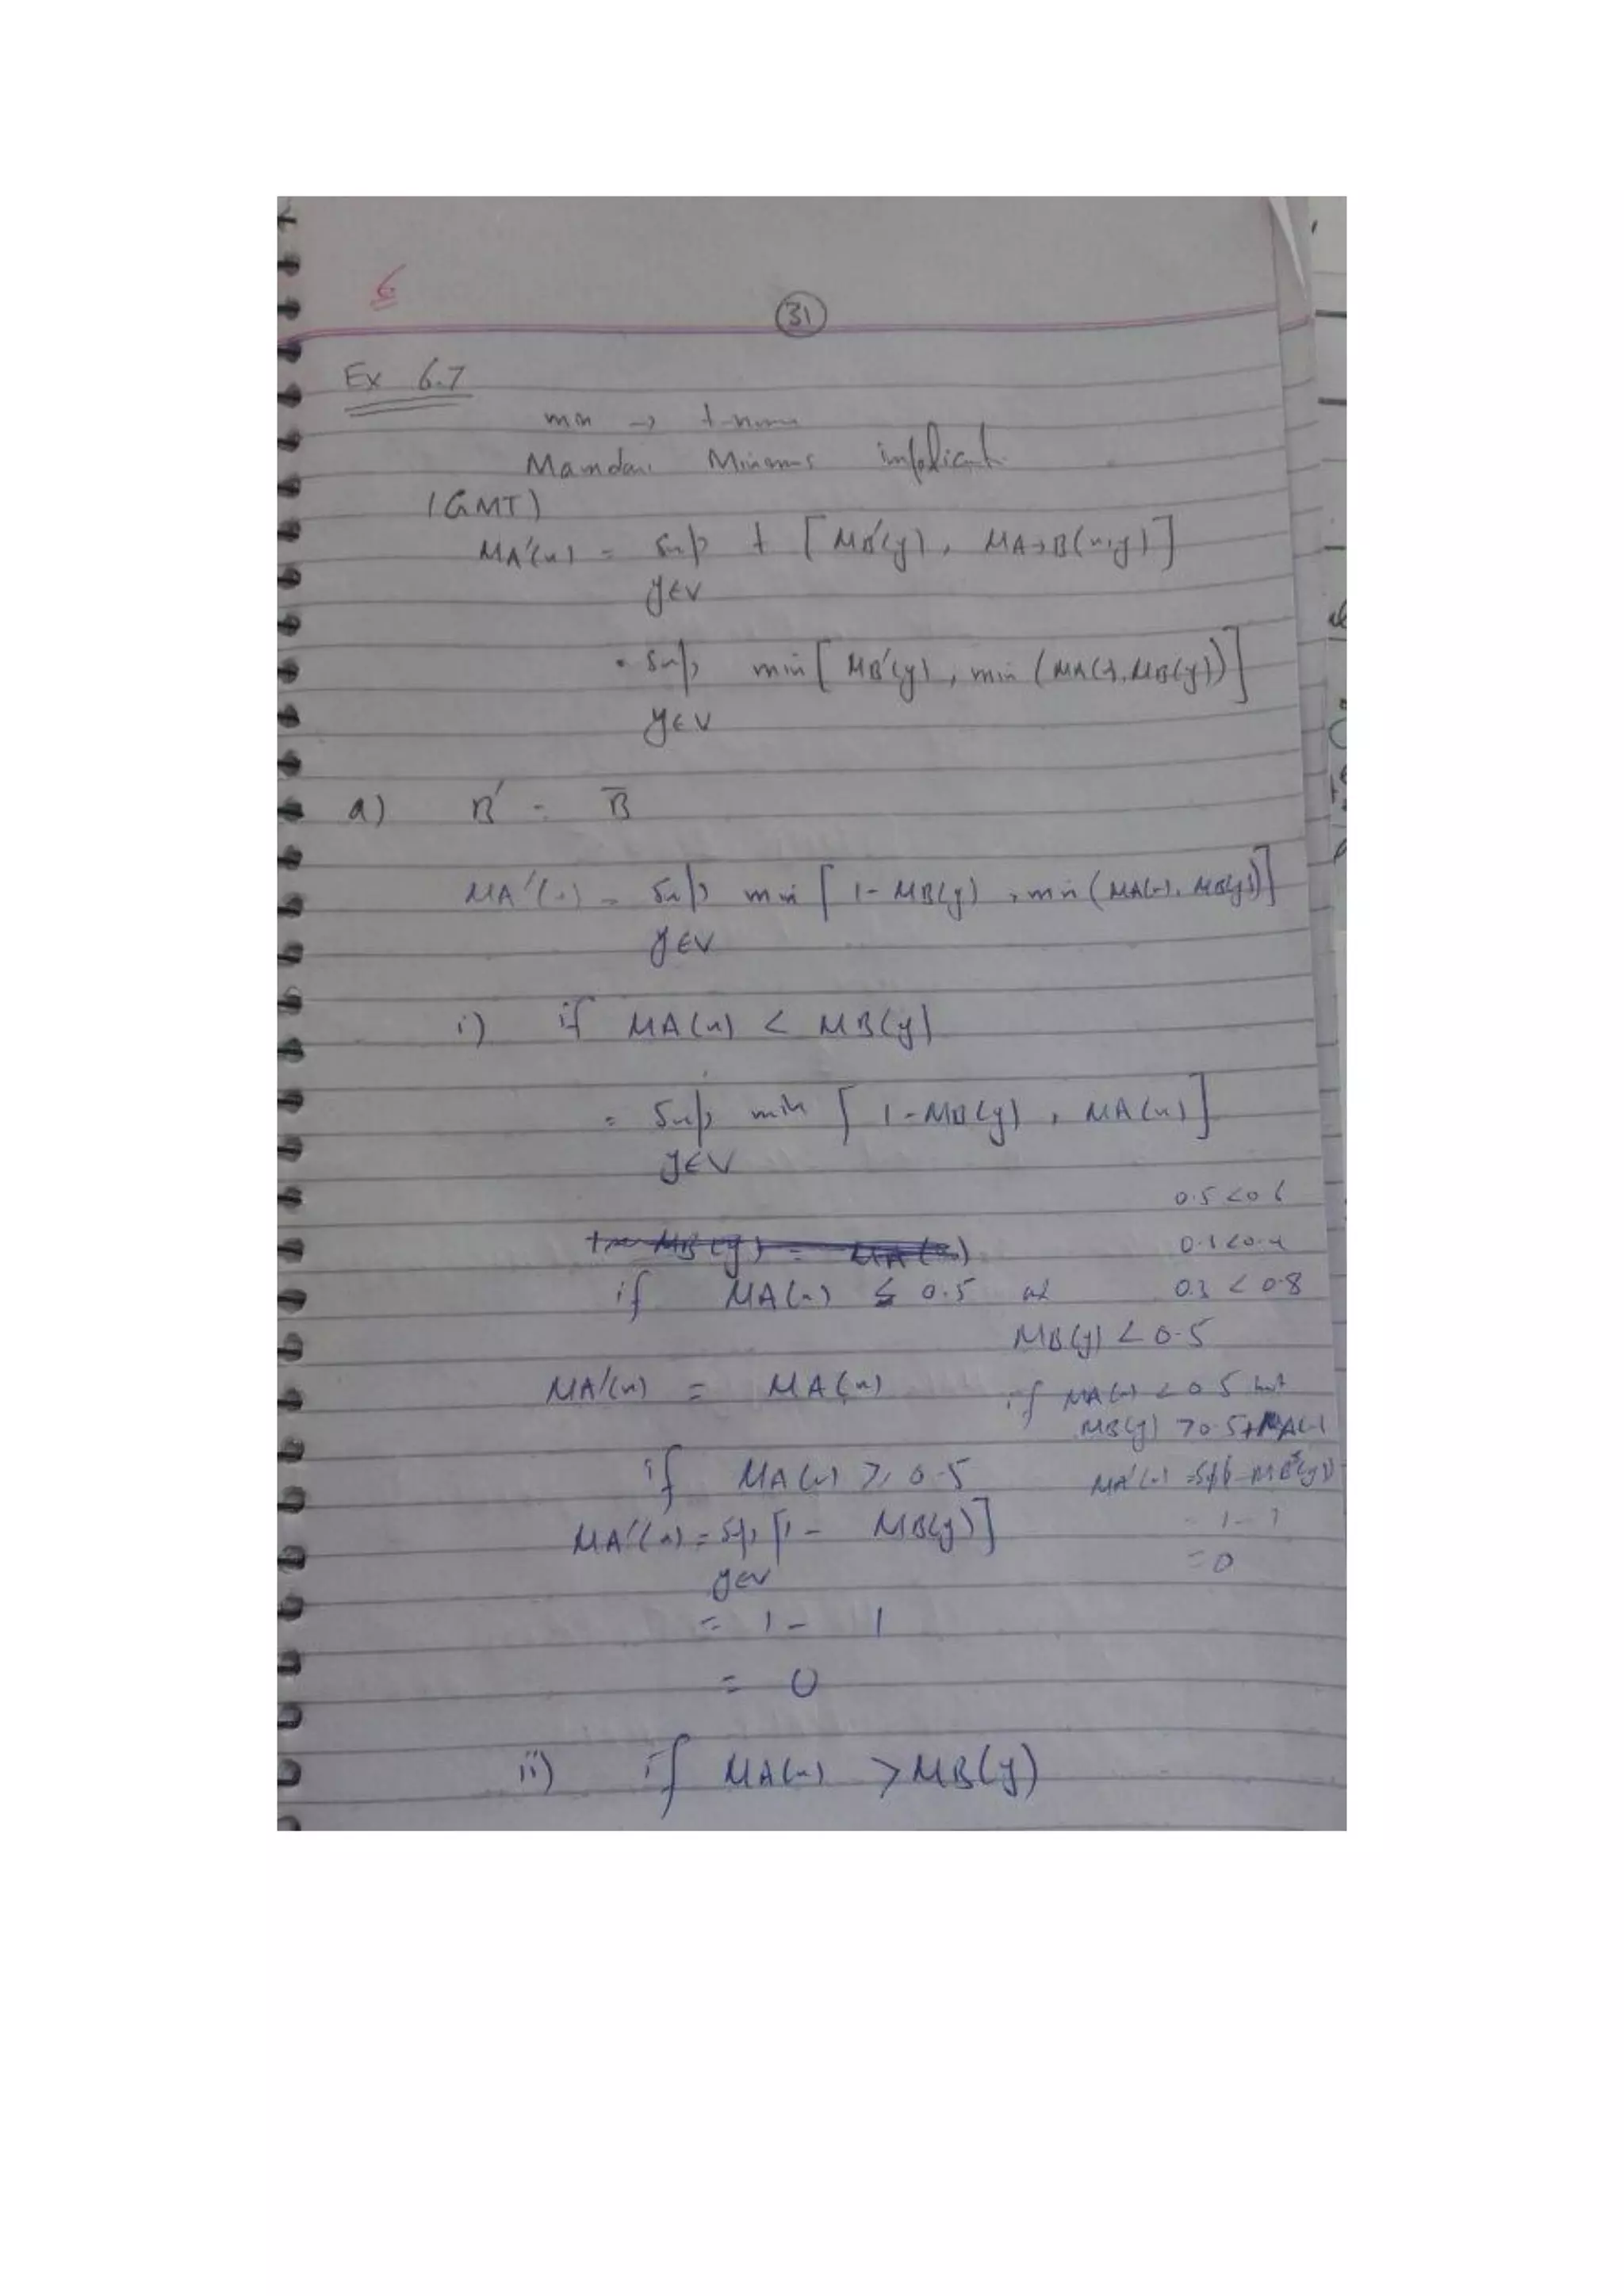 6
31
Ex 6.7
min → t-norm
Mamdani Minimums implicant
(GMT)
MA'(x) = Sup t [MB'(y), MA→B(x,y)]
y∈V
= Sup min [MB'(y), min (MA(x), MB(y))]
y∈V
a) B' = B̅
MA'(x) = Sup min [1 - MB(y), min (MA(x), MB(y))]
y∈V
i) if MA(x) < MB(y)
= Sup min [1 - MB(y), MA(x)]
y∈V
0.5 < 0.6
MB(y) = MA(x)
0.3 < 0.4
if MA(x) ≤ 0.5 and
0.3 < 0.8
MB(y) < 0.5
MA'(x) = MA(x)
if MA(x) < 0.5 but
MB(y) > 0.5 + MA(x)
if MA(x) ≥ 0.5
MA'(x) = Sup 1 - MB(y)
MA'(x) = Sup [1 - MB(y)]
= 1 - 1
y∈V
= 0
= 1 - 1
= 0
ii) if MA(x) > MB(y)